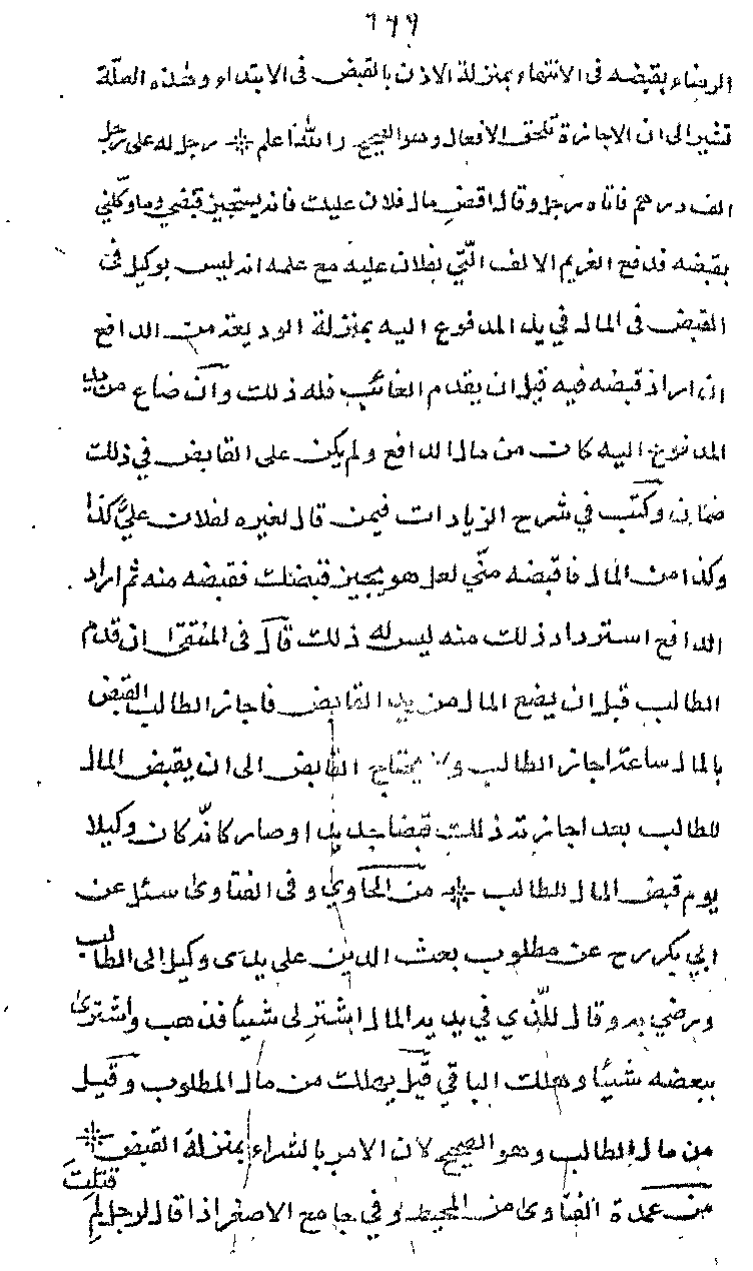 ٦٩٩
الرضاء بقبضه فى الانتهاء بمنزلة الاذن بالقبض فى الابتداء وهذه العلّة
تشير الى ان الاجازة تلحق الافعال وهو الصحيح والله اعلم ※ رجل له على رجل
الف درهم فاتاه رجل وقال اقض مال فلان عليك فانه يستجيز قبضي وما وكّلني
بقبضه فدفع الغريم الالف الّتي لفلان عليه مع علمه انه ليس بوكيل فى
القبض فى المال في يد المدفوع اليه بمنزلة الوديعة من الدافع
ان اراد قبضه فيه قبل ان يقدم الغائب فله ذلك وان ضاع من يد
المدفوع اليه كان من مال الدافع ولم يكن على القابض في ذلك
ضمان وكتب في شرح الزيادات فيمن قال لغيره لفلان عليّ كذا
وكذا من المال فاقبضه منّي لعل هو يجيز قبضك فقبضه منه ثم اراد
الدافع استرداد ذلك منه ليس له ذلك قال فى المنتقى ان قدم
الطالب قبل ان يضع المال من يد القابض فاجاز الطالب القبض
بالمال ساعة اجاز الطالب ولا يحتاج القابض الى ان يقبض المال
للطالب بعد اجازته ذلك قبضا جديدا وصار كانّه كان وكيلا
يوم قبض المال للطالب ※ من الحاوي وفى الفتاوى سئل عن
ابي بكر رح عن مطلوب بعث الدين على يدى وكيل الى الطالب
ورضي به وقال للّذي في يديه المال اشتر لى شيئا فذهب واشترى
ببعضه شيئا وهلك الباقي قيل يهلك من مال المطلوب وقيل
من مال الطالب وهو الصحيح لان الامر بالشراء بمنزلة القبض ※
من عمدة الفتاوى من المحيط وفي جامع الاصغر اذا قال لرجل لم قتلت